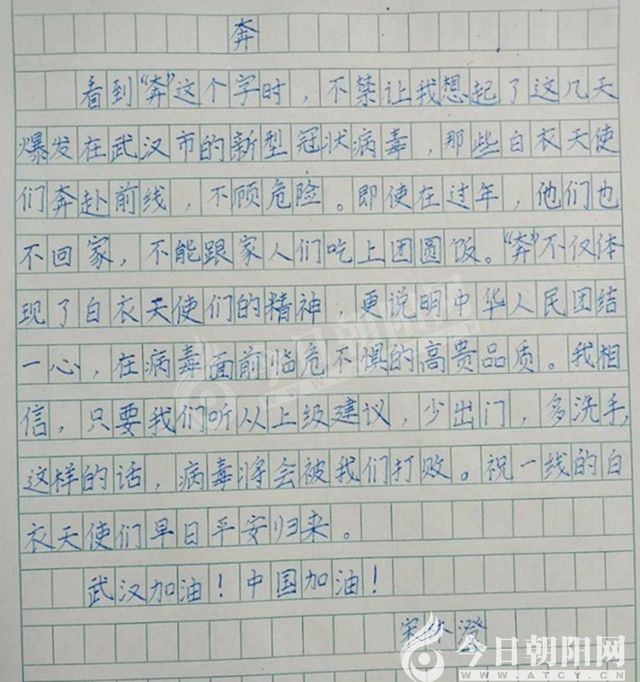 奔
看到“奔”这个字时，不禁让我想起了这几天
爆发在武汉市的新型冠状病毒，那些白衣天使
们奔赴前线，不顾危险。即使在过年，他们也
不回家，不能跟家人们吃上团圆饭。“奔”不仅体
现了白衣天使们的精神，更说明中华人民团结
一心，在病毒面前临危不惧的高贵品质。我相
信，只要我们听从上级建议，少出门，多洗手，
这样的话，病毒将会被我们打败。祝一线的白
衣天使们早日平安归来。
武汉加油！中国加油！
宋 澄
今日朝阳网
WWW.ATCY.CN